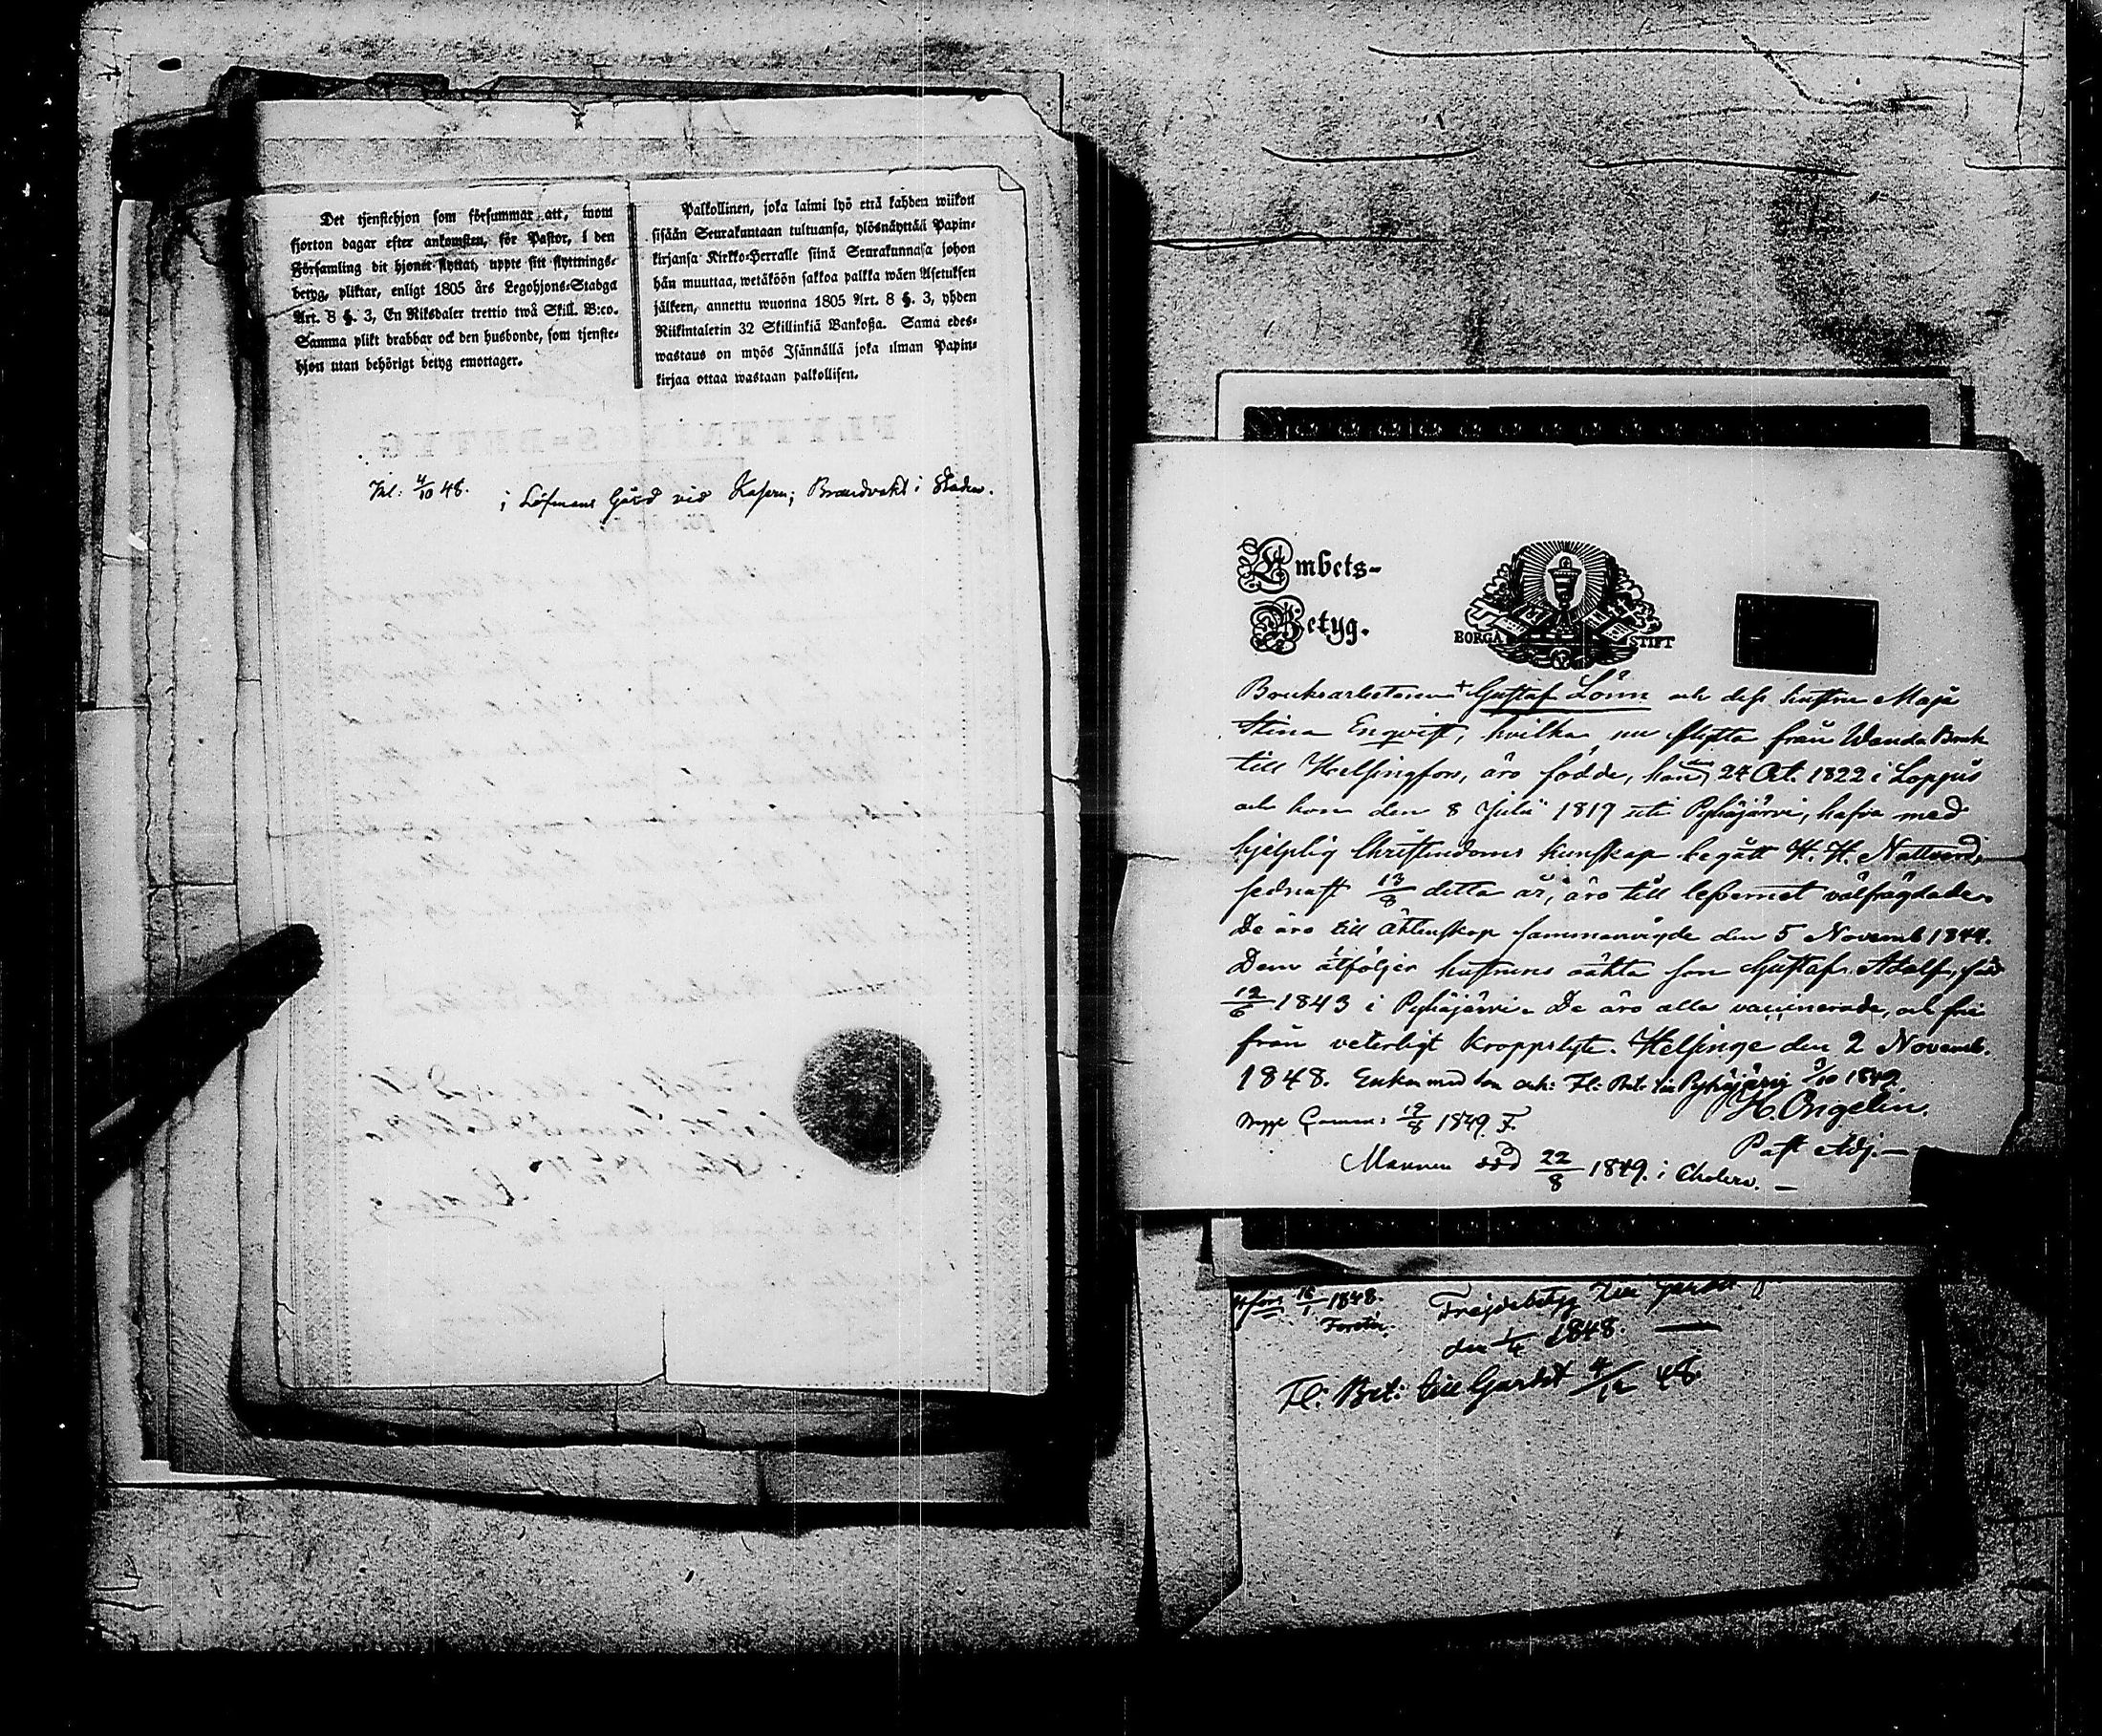 Det tjenstehjon som försummar att, inom
fjorton dagar efter ankomsten, för Pastor, i den
Församling dit hjonet flyttat, uppte sitt flyttnings-
betyg, pliktar, enligt 1805 års Legohjons-Stadga
Art. 8 §. 3, En Riksdaler trettio twå Skill. B:co.
Samma plikt drabbar ock den husbonde, som tjenste-
hjon utan behörigt betyg emottager.
Palkollinen, joka laimi lyö että kahden wiikon
sisään Seurakuntaan tultuansa, ylösnäyttää Papin-
kirjansa Kirkko-Herralle siinä Seurakunnasa johon
hän muuttaa, wetäköön sakkoa palkka wäen Asetuksen
jälkeen, annettu wuonna 1805 Art. 8 §. 3, yhden
Riikintalerin 32 Skillinkiä Bankoßa. Sama edes-
wastaus on myös Isännällä joka ilman Papin-
kirjaa ottaa wastaan palkollisen.
FLYTTNINGS-BETYG.
Inl: 4/10 48. i Löfmans Gård vid Kasern; Brandvakt i Staden.
Embets-
Betyg.
BORGÅ STIFT
Bruksarbetaren + Gustaf Lönn och dess hustru Maja
Stina Enqvist, hvilka nu flytta från Wanda Bruk
till Helsingfors, äro födde, han den 24 Oct. 1822 i Loppis
och hon den 8 Julii 1817 uti Pyhäjärvi, hafva med
hjelplig Christendoms kunskap begått H. H. Nattvard,
sednast 13/8 detta år, äro till lefvernet välfrägdade.
De äro till äktenskap sammanvigde den 5 Novemb 1844.
Dem åtföljer hustruns oäkta son Gustaf Adolf, född
12/6 1843 i Pyhäjärvi. De äro alla vaccinerade, och frie
från veterligt kroppslyte. Helsinge den 2 Novemb.
1848. Enkan med son erh: Fl: Bet: till Pyhäjärvi 3/10 1849.
H. Ongelin.
1849. F.
Past Adj.
Mannen död 22/8 1849. i Cholera.
fors 16/1 1848. Frejdebetyg till
den 1/4 1848.
Fl: Bet: till 4/12 48.